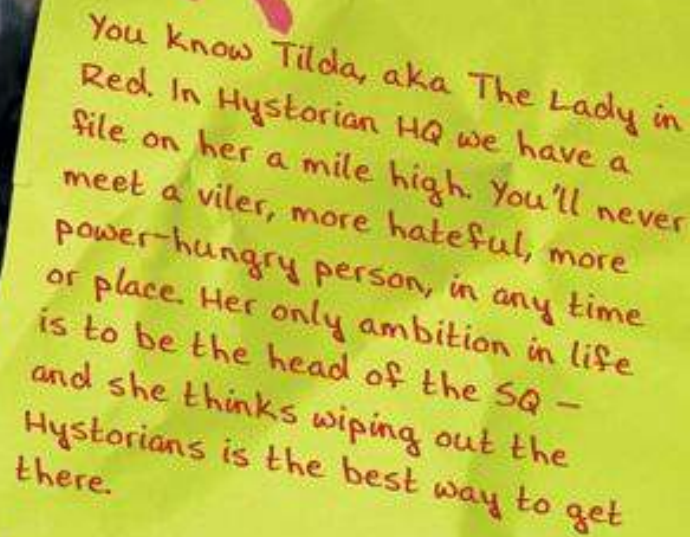 You know Tilda, aka The Lady in
Red. In Hystorian HQ we have a
file on her a mile high. You'll never
meet a viler, more hateful, more
power-hungry person, in any time
or place. Her only ambition in life
is to be the head of the SQ –
and she thinks wiping out the
Hystorians is the best way to get
there.